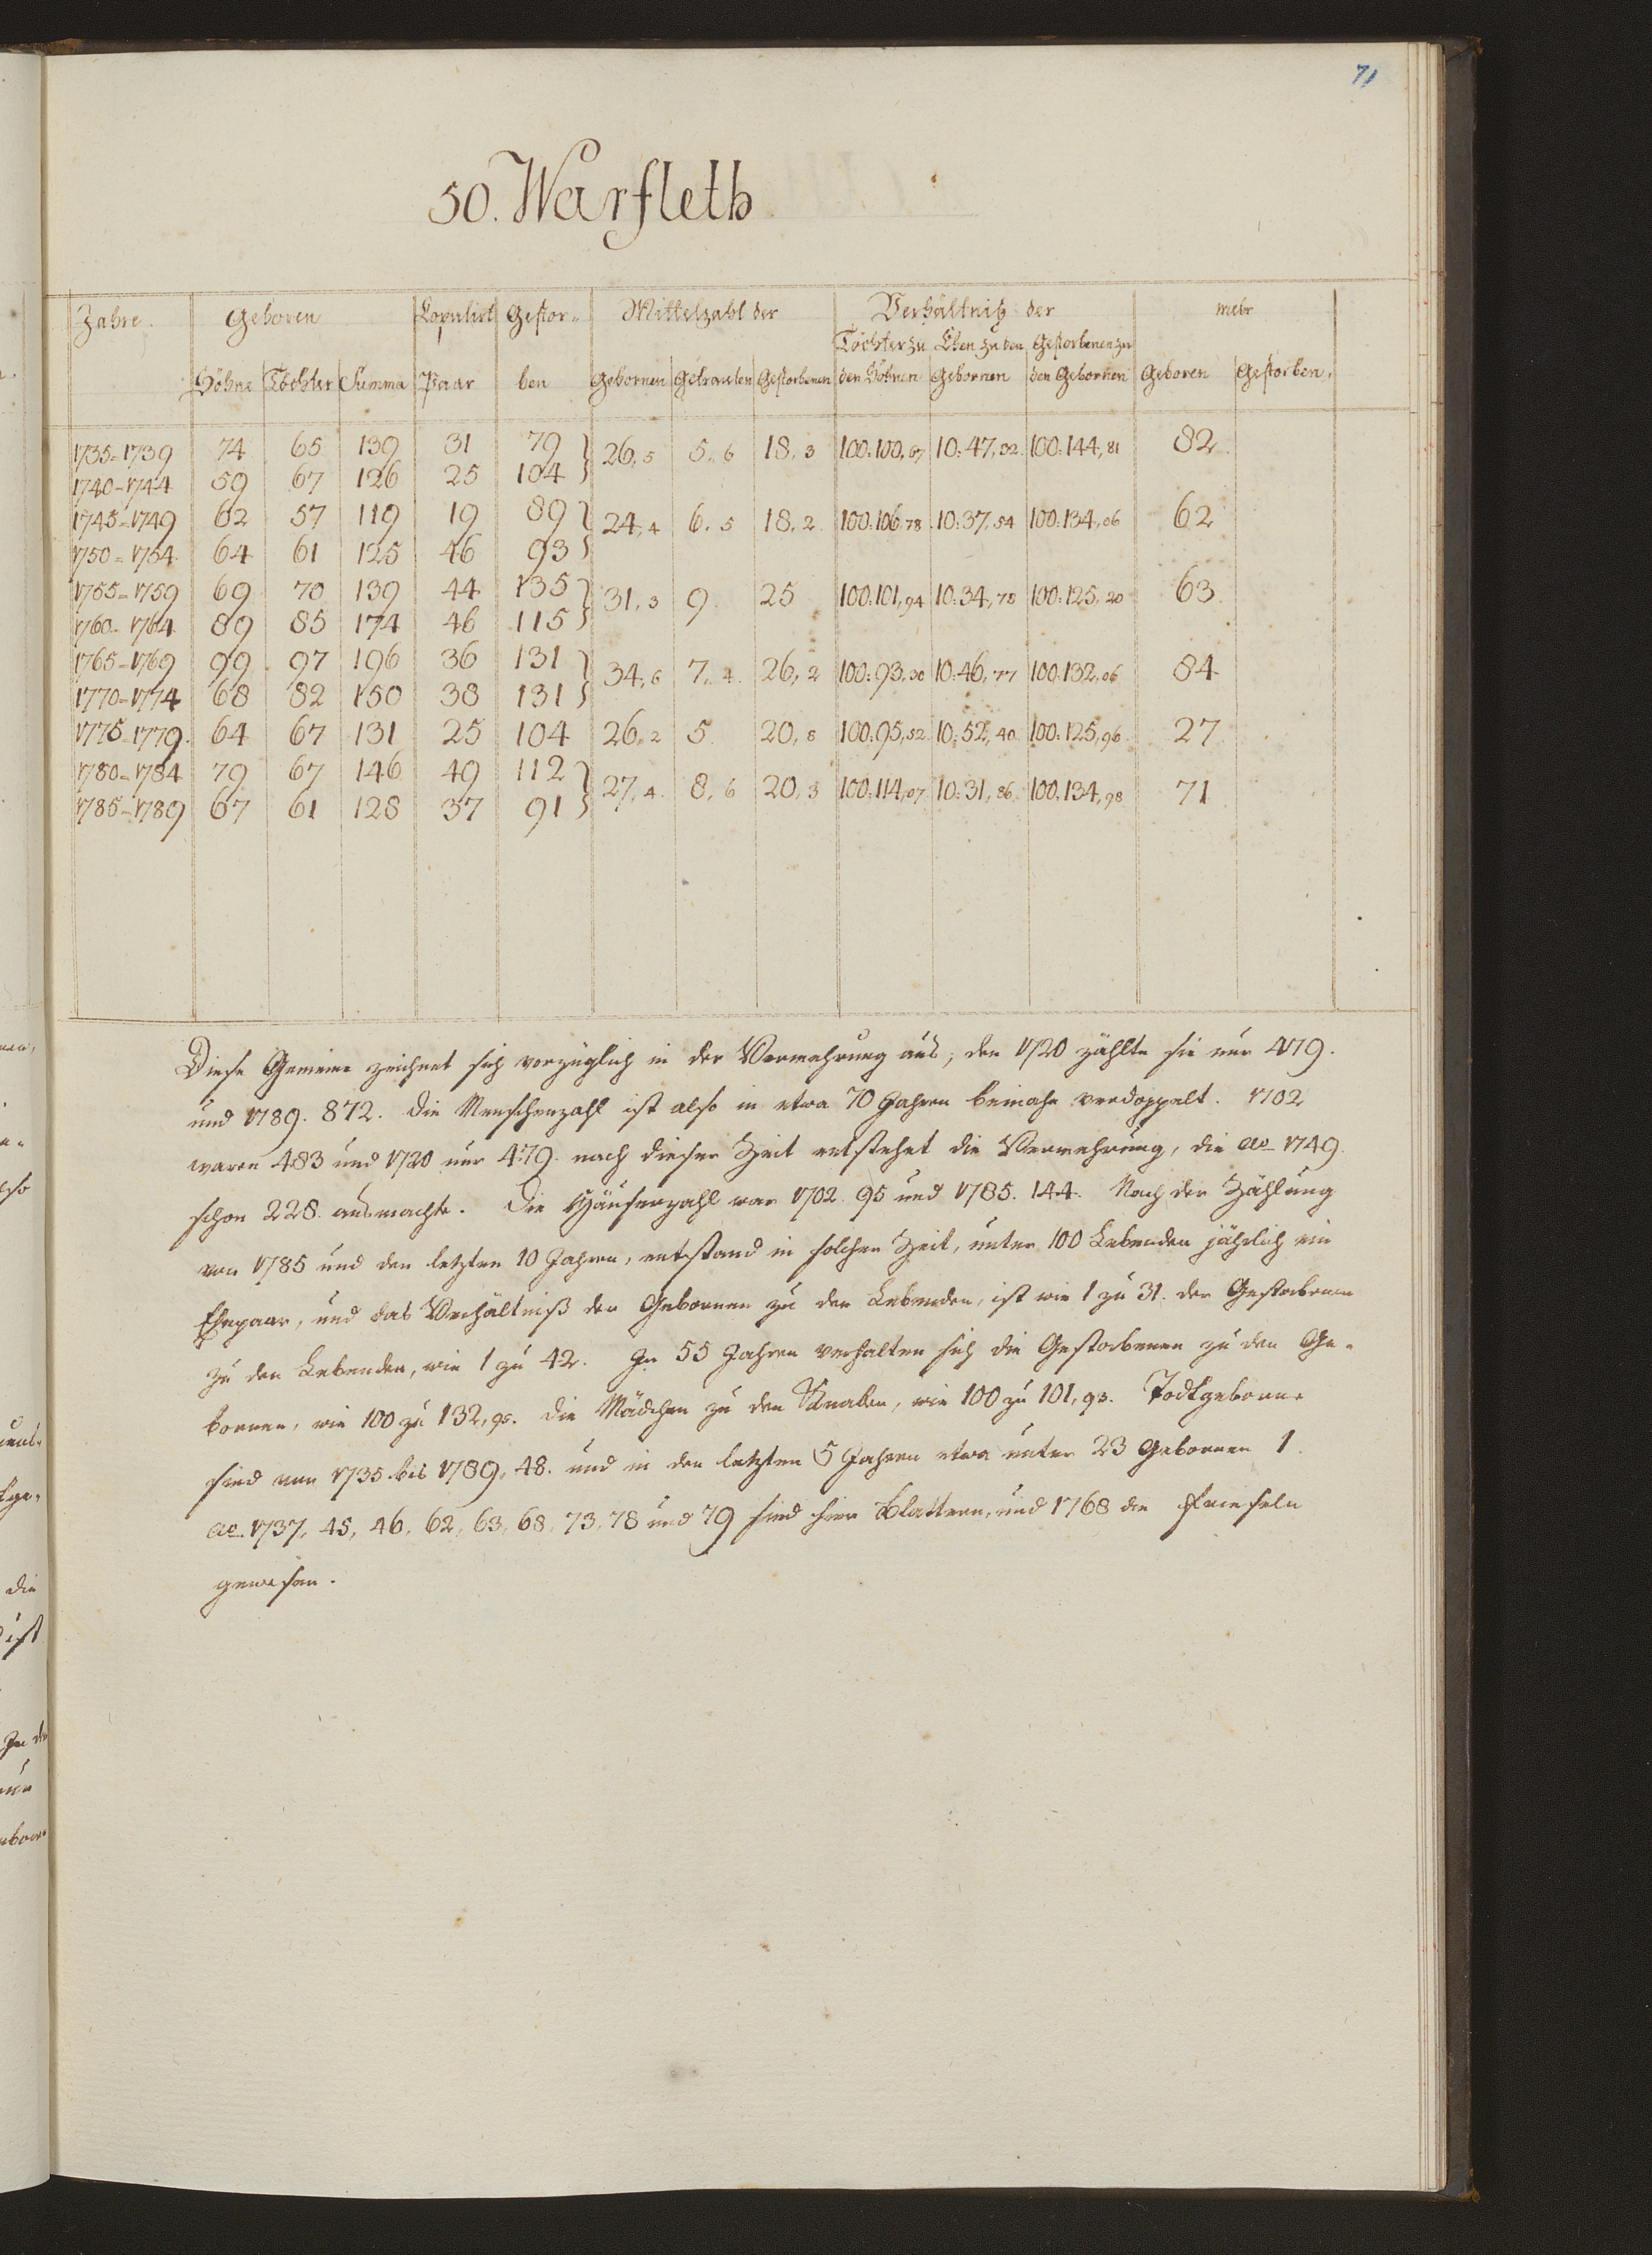 71
50. Warfleth
Jahre. Geboren Kopulirt Gestor= Mittelzahl der Verhältniß der mehr
Töchter zu Ehen zu den Gestorbenen zu
Söhne Töchter Summa Paar ben Gebornen Getrauten Gestorbenen den Söhnen Gebornen den Gebornen Geboren Gestorben.
1735=1739 74 65 139 31 79 } 26,5 5,6 18,3 100:100,67 10:47,32 100:144,81 82
1740=1744 59 67 126 25 104 }
1745=1749 62 57 119 19 89 } 24,4 6,5 18,2 100:106,78 10:37,54 100:134,06 62
1750=1754 64 61 125 46 93 }
1755=1759 69 70 139 44 135 } 31,3 9 25 100:101,94 10:34,78 100:125,20 63
1760=1764 89 85 174 46 115 }
1765=1769 99 97 196 36 131 } 34,6 7,4 26,2 100:93,30 10:46,77 100:132,06 84
1770=1774 68 82 150 38 131 }
1775=1779 64 67 131 25 104 26,2 5 20,8 100:95,52 10:52,40 100:125,96 27
1780=1784 79 67 146 49 112 } 27,4 8,6 20,3 100:114,07 10:31,86 100:134,98 71
1785=1789 67 61 128 37 91 }
Diese Gemeine zeichnet sich vorzüglich in der Vermehrung aus, den 1720 zählte sie nur 479.
und 1789. 872. Die Menschenzahl ist also in etwa 70 Jahren beinahe verdoppelt. 1702
waren 483 und 1720 nur 479. nach dieser Zeit entstehet die Vermehrung, die ao 1749.
schon 228 ausmachte. Die Häuserzahl war 1702. 95 und 1785. 144. Nach der Zählung
von 1785 und den letzten 10 Jahren, entstand in solcher Zeit, unter 100 Lebenden jährlich ein
Ehepaar, und das Verhältniß der Gebornen zu den Lebenden, ist wie 1 zu 31. der Gestorbenen
zu den Lebenden, wie 1 zu 42. In 55 Jahren verhalten sich die Gestorbenen zu den Ge=
bornen, wie 100 zu 132,90. die Mädchen zu den Knaben, wie 100 zu 101,93. Todtgeborne
sind von 1735 bis 1789, 48. und in den letzten 5 Jahren etwa unter 23 Gebornen 1.
ao 1737, 45, 46, 62, 63, 68, 73, 78 und 79 sind hier Blattern, und 1768 die Frieseln
gewesen.